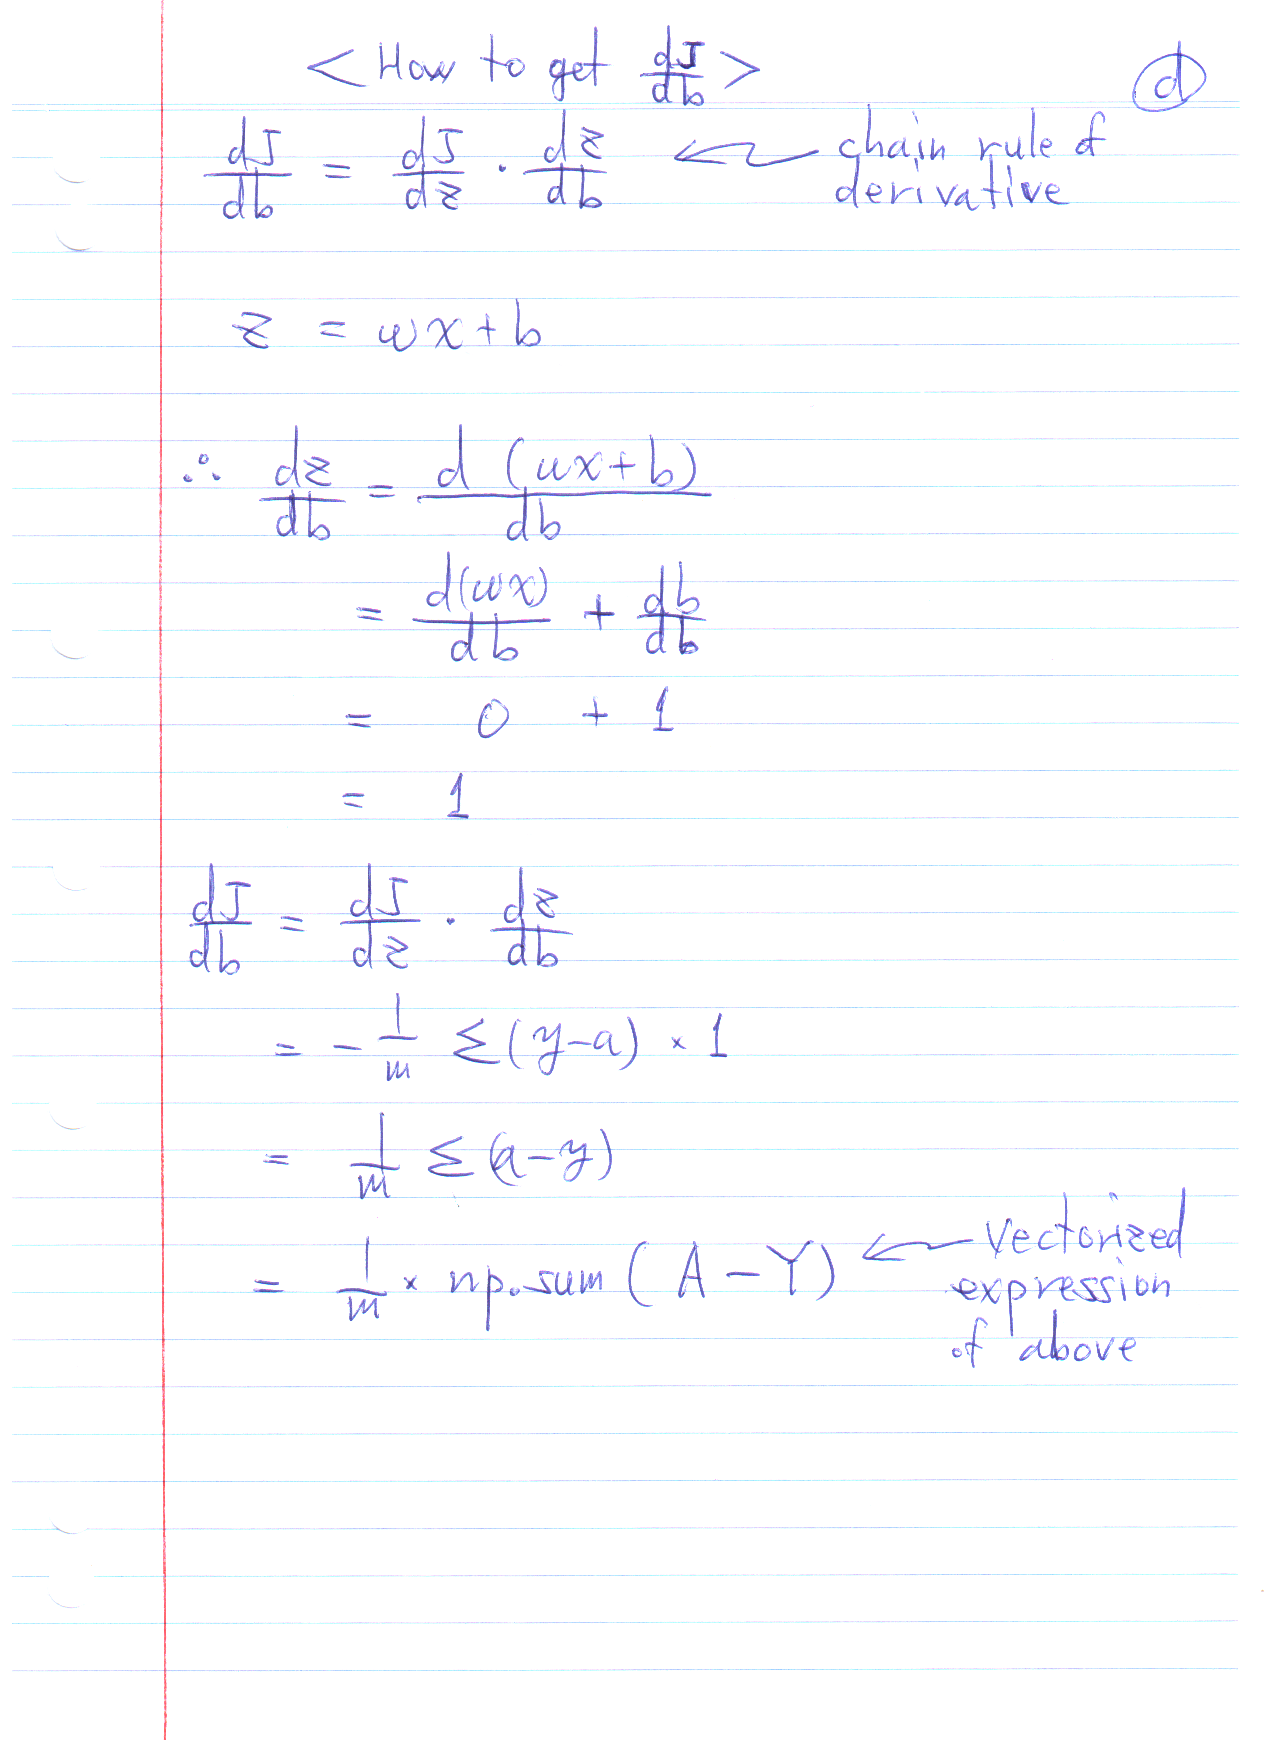 < How to get dJ/db >
d
dJ/db = dJ/dz · dz/db ← chain rule of
derivative
z = wx + b
∴ dz/db = d (wx+b)/db
= d(wx)/db + db/db
= 0 + 1
= 1
dJ/db = dJ/dz · dz/db
= - 1/m Σ(y-a) × 1
= 1/m Σ(a-y)
= 1/m × np.sum (A - Y) ← Vectorized
expression
of above